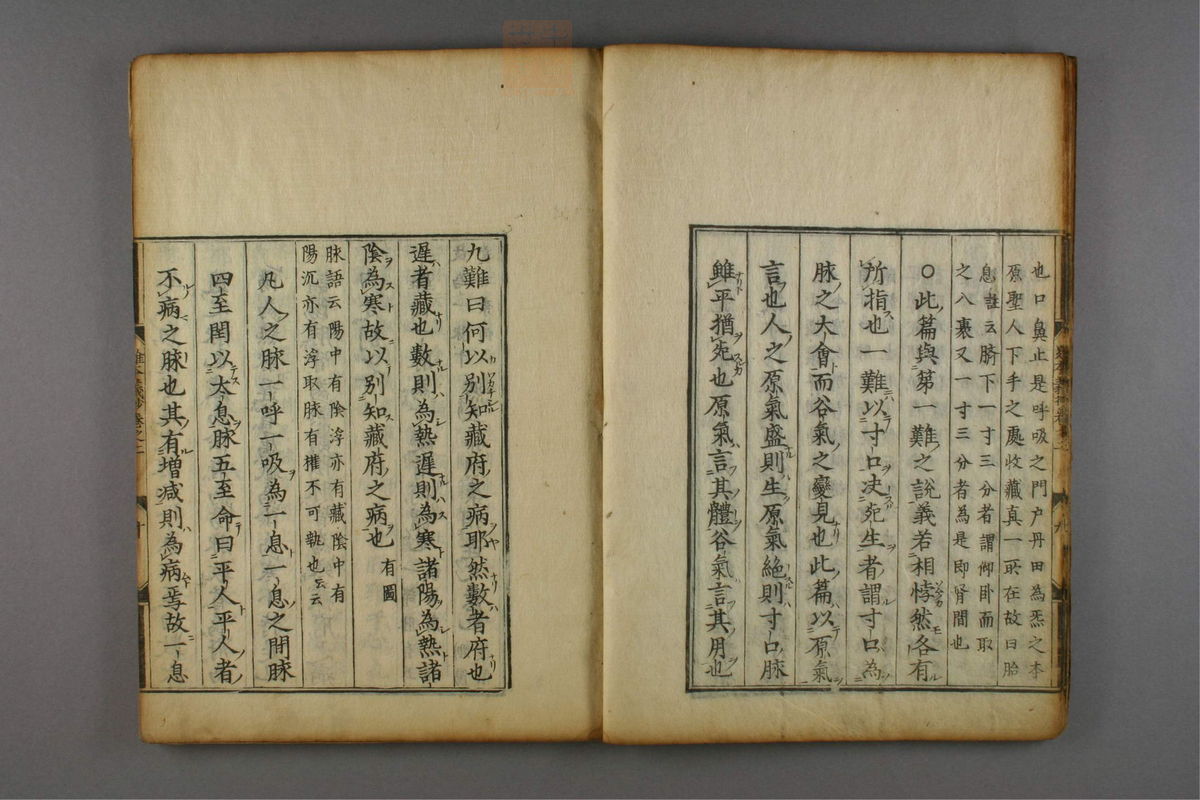 也口鼻止是呼吸之門户丹田為炁之本
原聖人下手之處收藏真一所在故曰胎
息註云臍下一寸三分者謂仰卧而取
之入裏又一寸三分者為是即腎間也
○此篇與第一難之說義若相悖然各有
所指也一難以寸口决死生者謂寸口為
脉之大會而谷氣之變見也此篇以原氣
言也人之原氣盛則生原氣絶則寸口脉
雖平猶死也原氣言其體谷氣言其用也
九難曰何以別知藏府之病耶然數者府也
遲者藏也數則為熱遲則為寒諸陽為熱諸
陰為寒故以別知藏府之病也 有圖
脉語云陽中有陰浮亦有藏陰中有
陽沉亦有浮取脉有權不可執也云云
凡人之脉一呼一吸為一息一息之間脉
四至閏以太息脉五至命曰平人平人者
不病之脉也其有增减則為病焉故一息